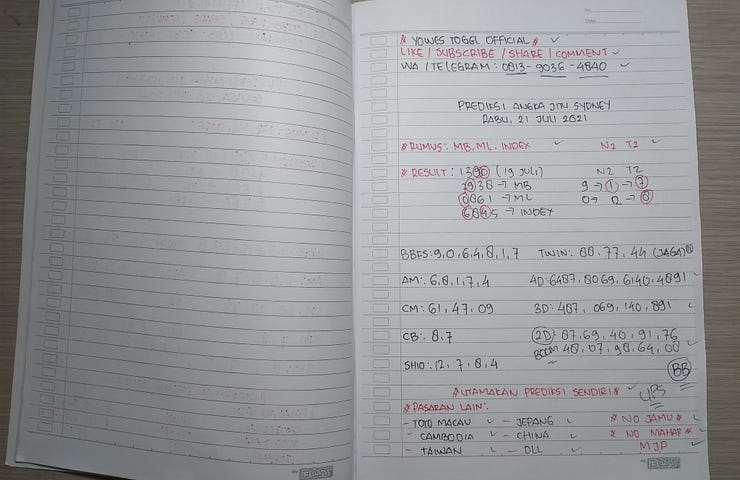 No.
Date
* YOWES TOGEL OFFICIAL *
LIKE / SUBSCRIBE / SHARE / COMMENT
WA / TELEGRAM : 0813-9036-4840
PREDIKSI ANGKA JITU SYDNEY
RABU, 21 JULI 2021
* RUMUS : MB, ML, INDEX N2 T2
* RESULT : 1390 (19 JULI) N2 T2
7938 → MB 9 → 1 → 7
0861 → ML 0 → 2 → 8
6845 → INDEX
BBFS : 9,0,6,4,8,1,7 TWIN : 88.77.44 (JAGA²)
AM : 6,8,1,7,4 4D : 6487.8069.6140.4891
CM : 61,47,09 3D : 487, 069, 140, 891
CB : 8,7 2D : 87.69.40.91.76
BOOM 48.07.98.64.00
SHIO : 12, 7, 8, 4 BB
* UTAMAKAN PREDIKSI SENDIRI * UPS
* PASARAN LAIN :
- TOTO MACAU - JEPANG * NO JAMU *
- CAMBODIA - CHINA * NO MAHAR *
- TAIWAN - DLL MJP
BOSS
BOSS